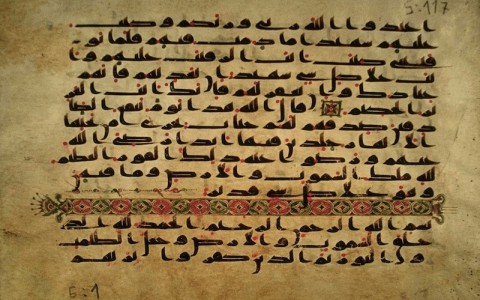 5:117
اعبدوا الله ربي وربكم وكنت
عليهم شهيدا ما دمت فيهم فلما تو
فيتني كنت انت الرقيب عليهم وا
نت على كل شي شهيد ان تعذبهم فانهم
عبادك وان تغفر لهم فانك انت العز
يز الحكيم قال الله هذا يوم ينفع الصد
قين صدقهم لهم جنت تجري من تحتها
الانهر خلدين فيها ابدا رضي الله
عنهم ورضوا عنه ذلك الفوز العظيم
لله ملك السموت والارض وما فيهن
وهو على كل شي قدير
بسم الله الرحمن الرحيم الحمد لله الذي
خلق السموت والارض وجعل الظلمت
والنور ثم الذين كفروا بربهم
6:1